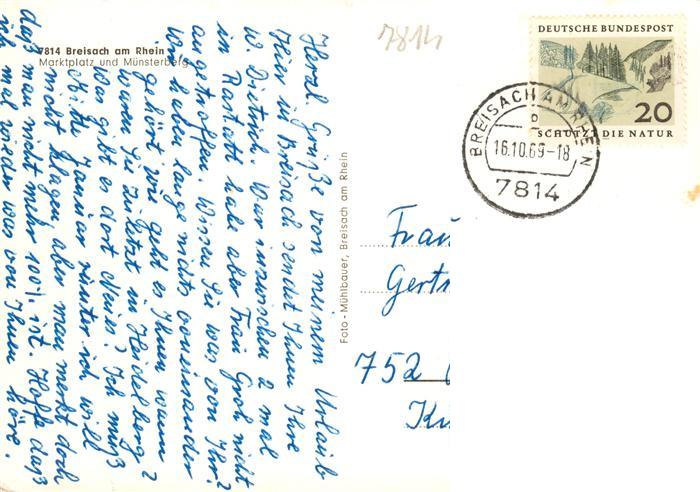 7814
7814 Breisach am Rhein
Marktplatz und Münsterberg
DEUTSCHE BUNDESPOST
20
SCHUTZT DIE NATUR
BREISACH AM RHEIN
b
16.10.69-18
7814
Herzl. Grüße von meinem Urlaub
hier in Breisach sendet Ihnen Ihre
W. Dietrich. War inzwischen 2 mal
in Rastatt habe aber Frau Groh nicht
angetroffen. Wissen Sie was von Ihr?
Wir haben lange nichts voneinander
gehört wie geht es Ihnen wann
waren Sie zuletzt in Heidelberg?
Was gibt es dort Neues? Ich muß
Mitte Januar runter ich will
nicht klagen aber man merkt doch
daß man nicht mehr 100% ist. Hoffe daß
ich mal wieder was von Ihnen höre.
Foto-Mühlbauer, Breisach am Rhein
Frau
Gertr
752